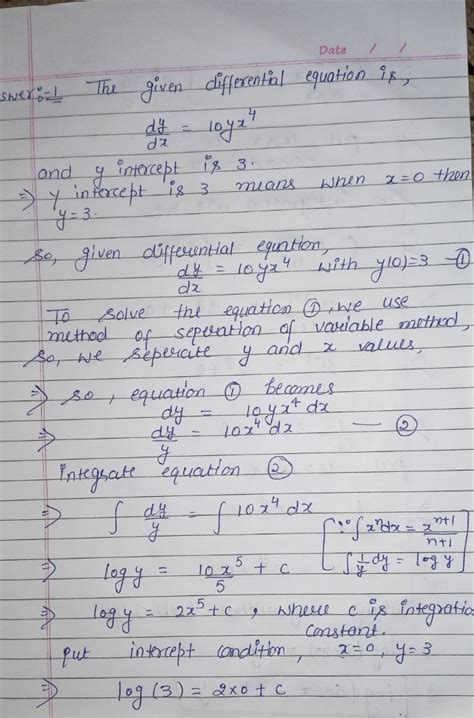 Date / /
swer:-1 The given differential equation is,
dy/dx = 10yx⁴
and y intercept is 3.
⇒ y intercept is 3 means when x=0 then
y=3.
So, given differential equation,
dy/dx = 10yx⁴ with y(0)=3 —①
To solve the equation ①, we use
method of seperation of variable method,
So, we seperate y and x values,
⇒ so, equation ① becomes
dy = 10yx⁴ dx
⇒ dy/y = 10x⁴ dx — ②
Integrate equation ②
⇒ ∫ dy/y = ∫ 10x⁴ dx [∵ ∫xⁿdx = xⁿ⁺¹/n+1
⇒ log y = 10x⁵/5 + c ∫1/y dy = log y]
⇒ log y = 2x⁵ + c, where c is integratio
constant.
put intercept condition, x=0, y=3
⇒ log(3) = 2×0 + c